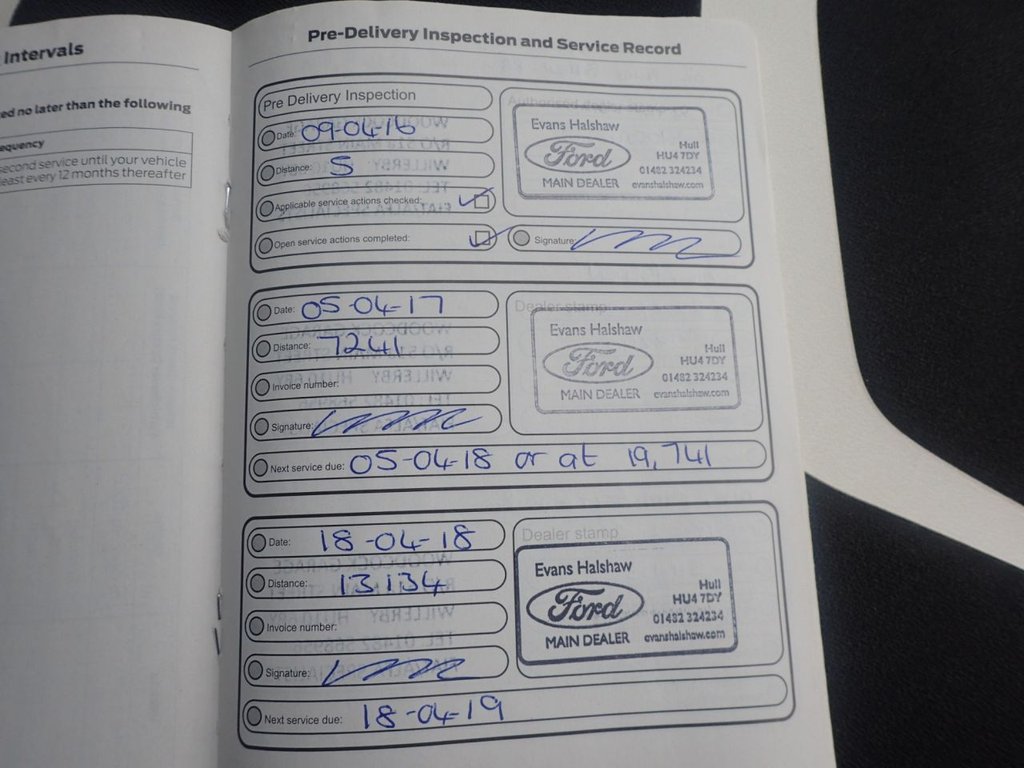 Intervals
ed no later than the following
equency
second service until your vehicle
least every 12 months thereafter
Pre-Delivery Inspection and Service Record
Pre Delivery Inspection
Date: 09-04-16
Distance: 5
Applicable service actions checked:
Open service actions completed:
Evans Halshaw
Ford
MAIN DEALER
Hull
HU4 7DY
01482 324234
evanshalshaw.com
Signature
Date: 05-04-17
Distance: 7241
Invoice number:
Signature:
Dealer stamp
Evans Halshaw
Ford
MAIN DEALER
Hull
HU4 7DY
01482 324234
evanshalshaw.com
Next service due: 05-04-18 or at 19,741
Date: 18-04-18
Distance: 13134
Invoice number:
Signature:
Dealer stamp
Evans Halshaw
Ford
MAIN DEALER
Hull
HU4 7DY
01482 324234
evanshalshaw.com
Next service due: 18-04-19